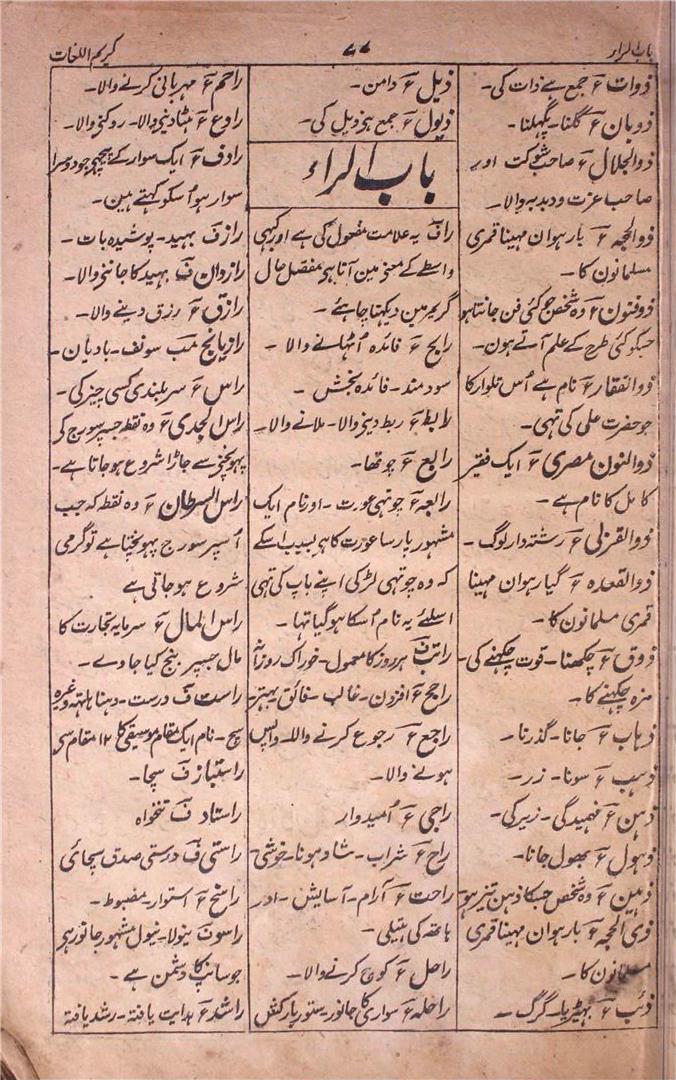 باب الراء
۷۷
کریم اللغات
ذوات ؏ جمع ہے ذات کی۔
ذوبان ؏ گلنا۔ پگہلنا۔
ذوالجلال ؏ صاحب شوکت اور
صاحب عزت و دبدبہ والا۔
ذوالحجہ ؏ بارہوان مہینا قمری
مسلمانون کا۔
ذوفنون ؏ وہ شخص جو کئی فن جانتا ہو
جسکو کئی طرح کے علم آتے ہون۔
ذوالفقار ؏ نام ہے اُس تلوار کا
جو حضرت علی کی تہی۔
ذوالنون مصری ؏ ایک فقیر
کامل کا نام ہے۔
ذوالقربی ؏ رشتہ دار لوگ۔
ذوالقعدہ ؏ گیارہوان مہینا
قمری مسلمانون کا۔
ذوق ؏ چکھنا۔ قوت چکہنے کی۔
مزہ چکہنے کا۔
ذہاب ؏ جانا۔ گذرنا۔
ذہب ؏ سونا۔ زر۔
ذہن ؏ فہمیدگی۔ زیرکی۔
ذہول ؏ بھول جانا۔
ذہین ؏ وہ شخص جسکا ذہن تیز ہو
ذی الحجہ ؏ بارہوان مہینا قمری
مسلمانون کا۔
ذئب ؏ بہیڑیا۔ گرگ۔
ذیل ؏ دامن۔
ذیول ؏ جمع ہی ذیل کی۔
باب الراء
را ف یہ علامت مفعول کی ہے اور کبہی
واسطے کے معنی مین آتا ہی مفصل حال
گریمر مین دیکہنا چاہئے۔
رابح ؏ فائدہ اُٹہانے والا۔
سودمند۔ فائدہ بخش۔
رابط ؏ ربط دینی والا۔ ملانے والا۔
رابع ؏ چوتھا۔
رابعہ ؏ چوتہی عورت۔ اور نام ایک
مشہور پارسا عورت کا ہی بسبب اسکے
کہ وہ چوتہی لڑکی اپنے باپ کی تہی
اسلئے یہ نام اُسکا ہوگیا تہا۔
راتب ف ہر روز کا معمول۔ خوراک روزانہ
راجح ؏ افزون۔ غالب۔ فائق۔ بہتر۔
راجع ؏ رجوع کرنے والا۔ واپس
ہونے والا۔
راجی ؏ اُمیدوار
راح ؏ شراب۔ شاد ہونا۔ خوشی۔
راحت ؏ آرام۔ آسایش۔ اور
ہاتھ کی ہتیلی۔
راحل ؏ کوچ کرنے والا۔
راحلہ ؏ سواری کا جانور۔ ستور بارکش
راحم ؏ مہربانی کرنے والا۔
رادع ؏ ہٹا دینی والا۔ روکنی والا۔
رادف ؏ ایک سوار کے پیچہے جو دوسرا
سوار ہو اُسکو کہتے ہین۔
راز ف بہید۔ پوشیدہ بات۔
رازدان ف بہید کا جاننی والا۔
رازق ؏ رزق دینے والا۔
رازیانج مب سونف۔ بادیان۔
راس ؏ سر۔ بلندی کسی چیز کی۔
راس الجدی ؏ وہ نقطہ جسپر سورج کے
پہونچنی سے جاڑا شروع ہوجاتا ہے۔
راس السرطان ؏ وہ نقطہ کہ جب
اُسپر سورج پہونچتا ہے تو گرمی
شروع ہوجاتی ہے
راس المال ؏ سرمایہ تجارت کا
مال جسپر بنج کیا جاوے۔
راست ف درست۔ دہنا ہاتھ وغیرہ
سچ۔ نام ایک مقام موسیقی کا ۱۲ مقام سی
راستباز ف سچا۔
راستاد ف تنخواہ
راستی ف درستی صدق سچائی
راسخ ؏ استوار۔ مضبوط۔
راسو ف نیولا۔ نیول مشہور جانور ہی
جو سانپ کا دشمن ہے۔
راشد ؏ ہدایت یافتہ۔ رشد یافتہ